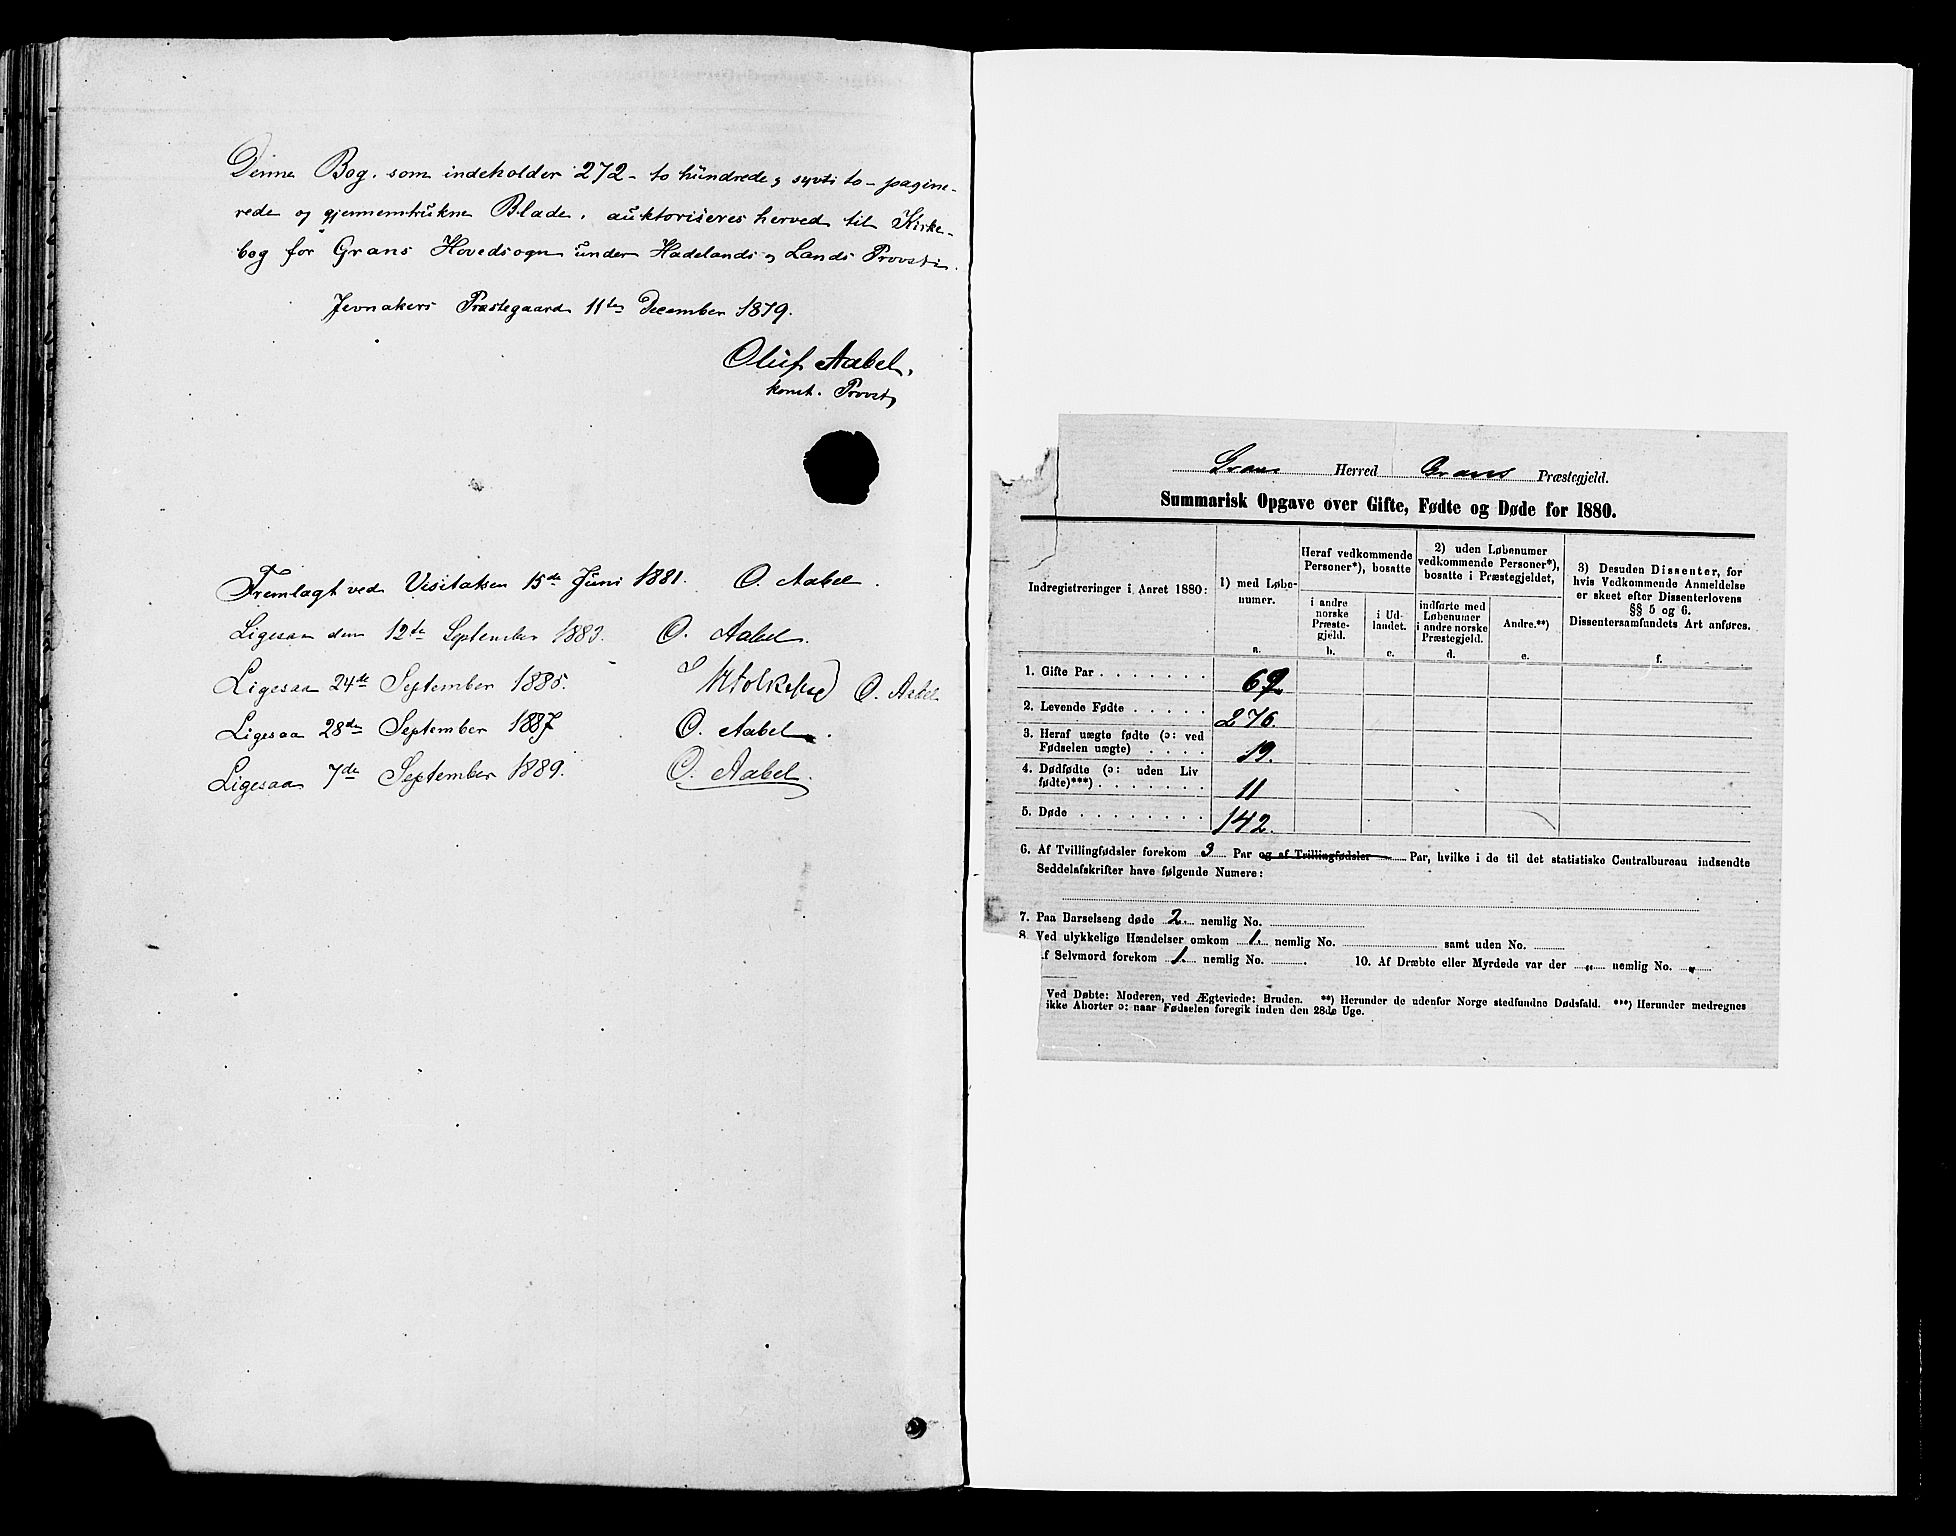 Denne Bog, som indeholder 272 - to hundrede og sytti to - pagine-
rede og gjennemtrukne Blade, auktoriseres herved til Kirke-
bog for Grans Hovedsogn under Hadelands og Lands Provsti.
Jevnakers Præstegaard 11te December 1879.
Oluf Aabel,
konst. Provst,
Fremlagt ved Visitaken 15de Juni 1881. O. Aabel.
Ligesaa den 12te September 1883. O. Aabel.
Ligesaa 24de September 1885. O. Aabel
Ligesaa 28de September 1887 O. Aabel.
Ligesaa 7de September 1889. O. Aabel.
Grans Herred Grans Præstegjeld.
Summarisk Opgave over Gifte, Fødte og Døde for 1880.
Indregistreringer i Aaret 1880:
1) med Løbe-
numer.
a.
Heraf vedkommende
Personer*), bosatte
i andre
norske
Præste-
gjeld.
b.
i Ud-
landet.
c.
2) uden Løbenumer
vedkommende Personer*),
bosatte i Præstegjeldet,
indførte med
Løbenumer
i andre norske
Præstegjeld.
d.
Andre.**)
e.
3) Desuden Dissenter, for
hvis Vedkommende Anmeldelse
er skeet efter Dissenterlovens
§§ 5 og 6.
Dissentersamfundets Art anføres.
f.
1. Gifte Par . . . . . . . 69
2. Levende Fødte . . . . . 276.
3. Heraf uægte fødte (ɔ: ved
Fødselen uægte) . . . . 19.
4. Dødfødte (ɔ: uden Liv
fødte)***) . . . . . . . 11
5. Døde . . . . . . . . 142.
6. Af Tvillingfødsler forekom 3 Par og af Trillingfødsler Par, hvilke i de til det statistiske Centralbureau indsendte
Seddelafskrifter have følgende Numere:
7. Paa Darselseng døde 2. nemlig No.
8. Ved ulykkelige Hændelser omkom 1. nemlig No. samt uden No.
Af Selvmord forekom 1. nemlig No. . 10. Af Dræbte eller Myrdede var der " nemlig No. "
Ved Døbte: Moderen, ved Ægteviede: Bruden. **) Herunder de udenfor Norge stedfundne Dødsfald. ***) Herunder medregnes
ikke Aborter ɔ: naar Fødselen foregik inden den 28de Uge.